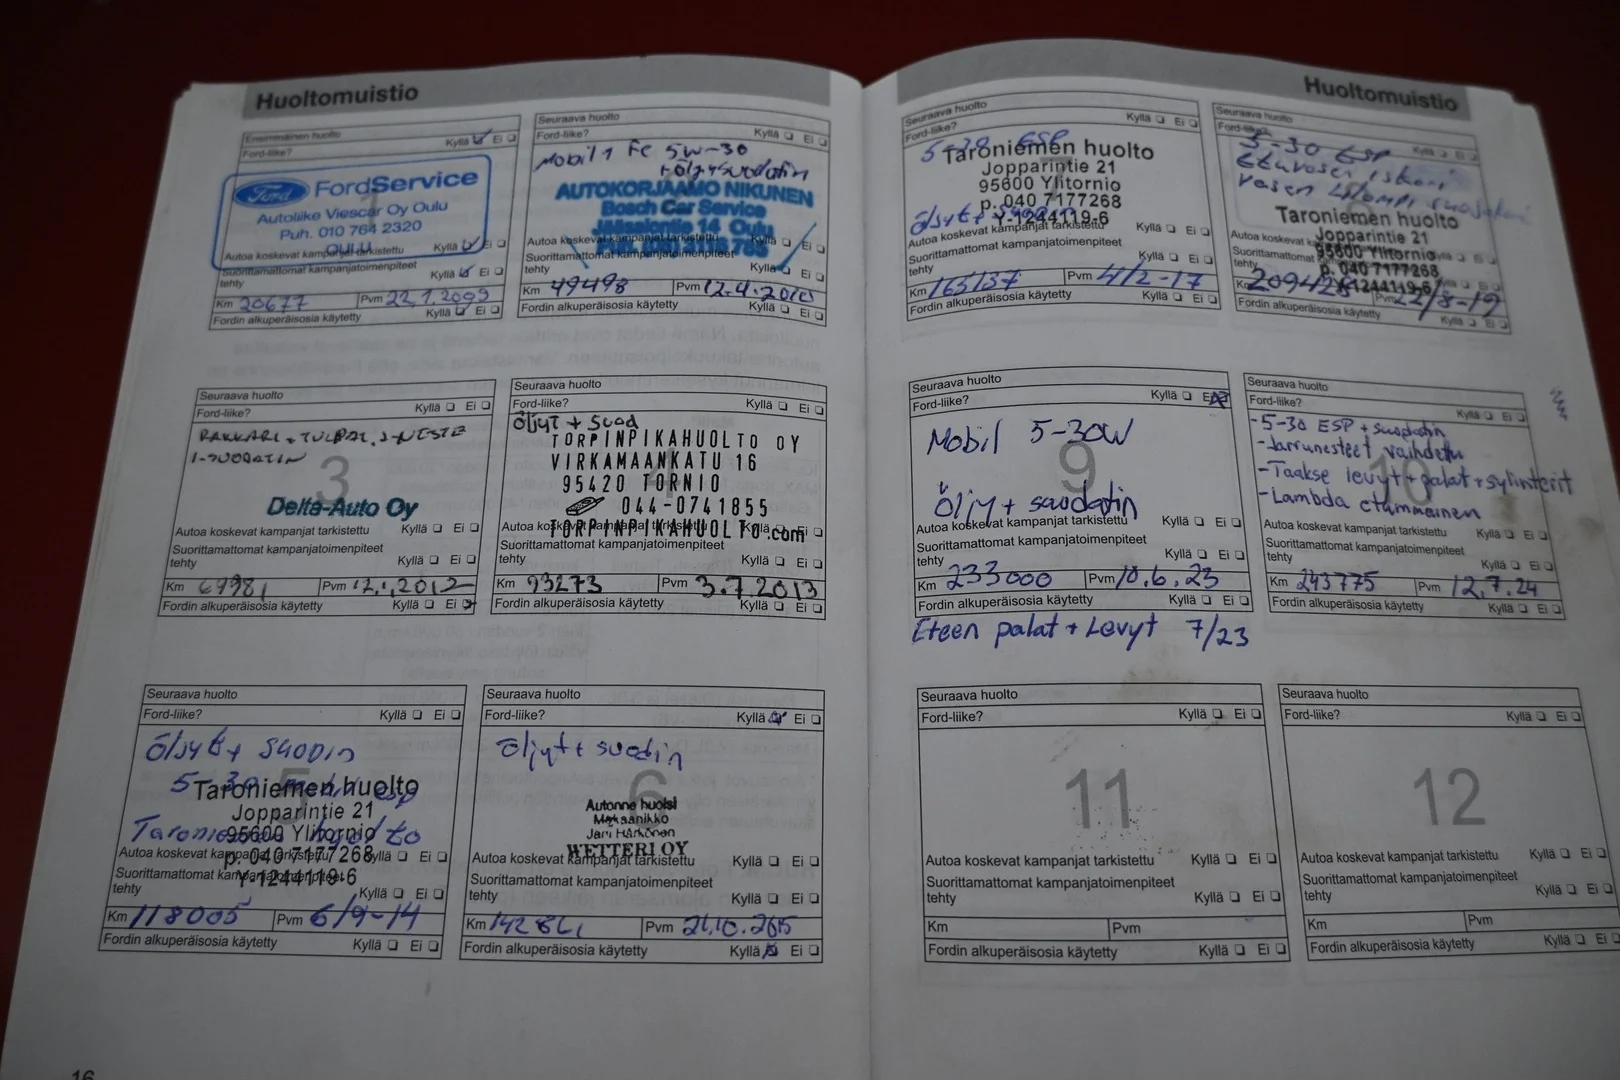 Huoltomuistio
Ensimmäinen huolto
Ford-liike? Kyllä Ei
Ford FordService
Autoliike Viescar Oy Oulu
Puh. 010 764 2320
OULU
Autoa koskevat kampanjat tarkistettu Kyllä Ei
Suorittamattomat kampanjatoimenpiteet
tehty Kyllä Ei
Km 20677 Pvm 22.1.2009
Fordin alkuperäisosia käytetty Kyllä Ei
Seuraava huolto
Ford-liike? Kyllä Ei
Mobil 1 Fe 5W-30
+öljysuodatin
AUTOKORJAAMO NIKUNEN
Bosch Car Service
14 Oulu
Autoa koskevat kampanjat tarkistettu Kyllä Ei
Suorittamattomat kampanjatoimenpiteet
tehty Kyllä Ei
Km 49498 Pvm 12.4.2010
Fordin alkuperäisosia käytetty Kyllä Ei
Seuraava huolto
Ford-liike? Kyllä Ei
3
Delta-Auto Oy
Autoa koskevat kampanjat tarkistettu Kyllä Ei
Suorittamattomat kampanjatoimenpiteet
tehty Kyllä Ei
Km 69981 Pvm 12.1.2012
Fordin alkuperäisosia käytetty Kyllä Ei
Seuraava huolto
Ford-liike? Kyllä Ei
Öljyt + Suod
TORPINPIKAHUOLTO OY
VIRKAMAANKATU 16
95420 TORNIO
044-0741855
Autoa koskevat kampanjat tarkistettu Kyllä Ei
TORPINPIKAHUOLTO.com
Suorittamattomat kampanjatoimenpiteet
tehty Kyllä Ei
Km 93273 Pvm 3.7.2013
Fordin alkuperäisosia käytetty Kyllä Ei
Seuraava huolto
Ford-liike? Kyllä Ei
5
Öljyt + suodin
5-30 esp
Taroniemen huolto
Jopparintie 21
95600 Ylitornio
p. 040 7177268
Y-1244119-6
Autoa koskevat kampanjat tarkistettu Kyllä Ei
Suorittamattomat kampanjatoimenpiteet
tehty Kyllä Ei
Km 118005 Pvm 6/9-14
Fordin alkuperäisosia käytetty Kyllä Ei
Seuraava huolto
Ford-liike? Kyllä Ei
6
Öljyt+ suodin
Autonne huolsi
Mekaanikko
Jari Härkönen
WETTERI OY
Autoa koskevat kampanjat tarkistettu Kyllä Ei
Suorittamattomat kampanjatoimenpiteet
tehty Kyllä Ei
Km Pvm
Fordin alkuperäisosia käytetty Kyllä Ei
16
Huoltomuistio
Seuraava huolto
Ford-liike? Kyllä Ei
ESP
Taroniemen huolto
Jopparintie 21
95600 Ylitornio
p. 040 7177268
Y-1244119-6
Autoa koskevat kampanjat tarkistettu Kyllä Ei
Suorittamattomat kampanjatoimenpiteet
tehty Kyllä Ei
Km 165137 Pvm 4/2-17
Fordin alkuperäisosia käytetty Kyllä Ei
Seuraava huolto
Ford-liike? Kyllä Ei
5-30 ESP
Taroniemen huolto
Jopparintie 21
95600 Ylitornio
p. 040 7177268
Y-1244119-6
Autoa koskevat
Suorittamattomat
tehty
Km Pvm 22/8-19
Fordin alkuperäisosia käytetty Kyllä Ei
Seuraava huolto
Ford-liike? Kyllä Ei
9
Mobil 5-30W
Öljy + suodatin
Autoa koskevat kampanjat tarkistettu Kyllä Ei
Suorittamattomat kampanjatoimenpiteet
tehty Kyllä Ei
Km 233000 Pvm 10.6.23
Fordin alkuperäisosia käytetty Kyllä Ei
Eteen palat + Levyt 7/23
Seuraava huolto
Ford-liike? Kyllä Ei
10
-5-30 ESP + suodatin
-Jarrunesteet vaihdettu
-Taakse levyt + palat + sylinterit
-Lambda etummainen
Autoa koskevat kampanjat tarkistettu Kyllä Ei
Suorittamattomat kampanjatoimenpiteet
tehty Kyllä Ei
Km 243775 Pvm 12.7.24
Fordin alkuperäisosia käytetty Kyllä Ei
Seuraava huolto
Ford-liike? Kyllä Ei
11
Autoa koskevat kampanjat tarkistettu Kyllä Ei
Suorittamattomat kampanjatoimenpiteet
tehty Kyllä Ei
Km Pvm
Fordin alkuperäisosia käytetty Kyllä Ei
Seuraava huolto
Ford-liike? Kyllä Ei
12
Autoa koskevat kampanjat tarkistettu Kyllä Ei
Suorittamattomat kampanjatoimenpiteet
tehty Kyllä Ei
Km Pvm
Fordin alkuperäisosia käytetty Kyllä Ei